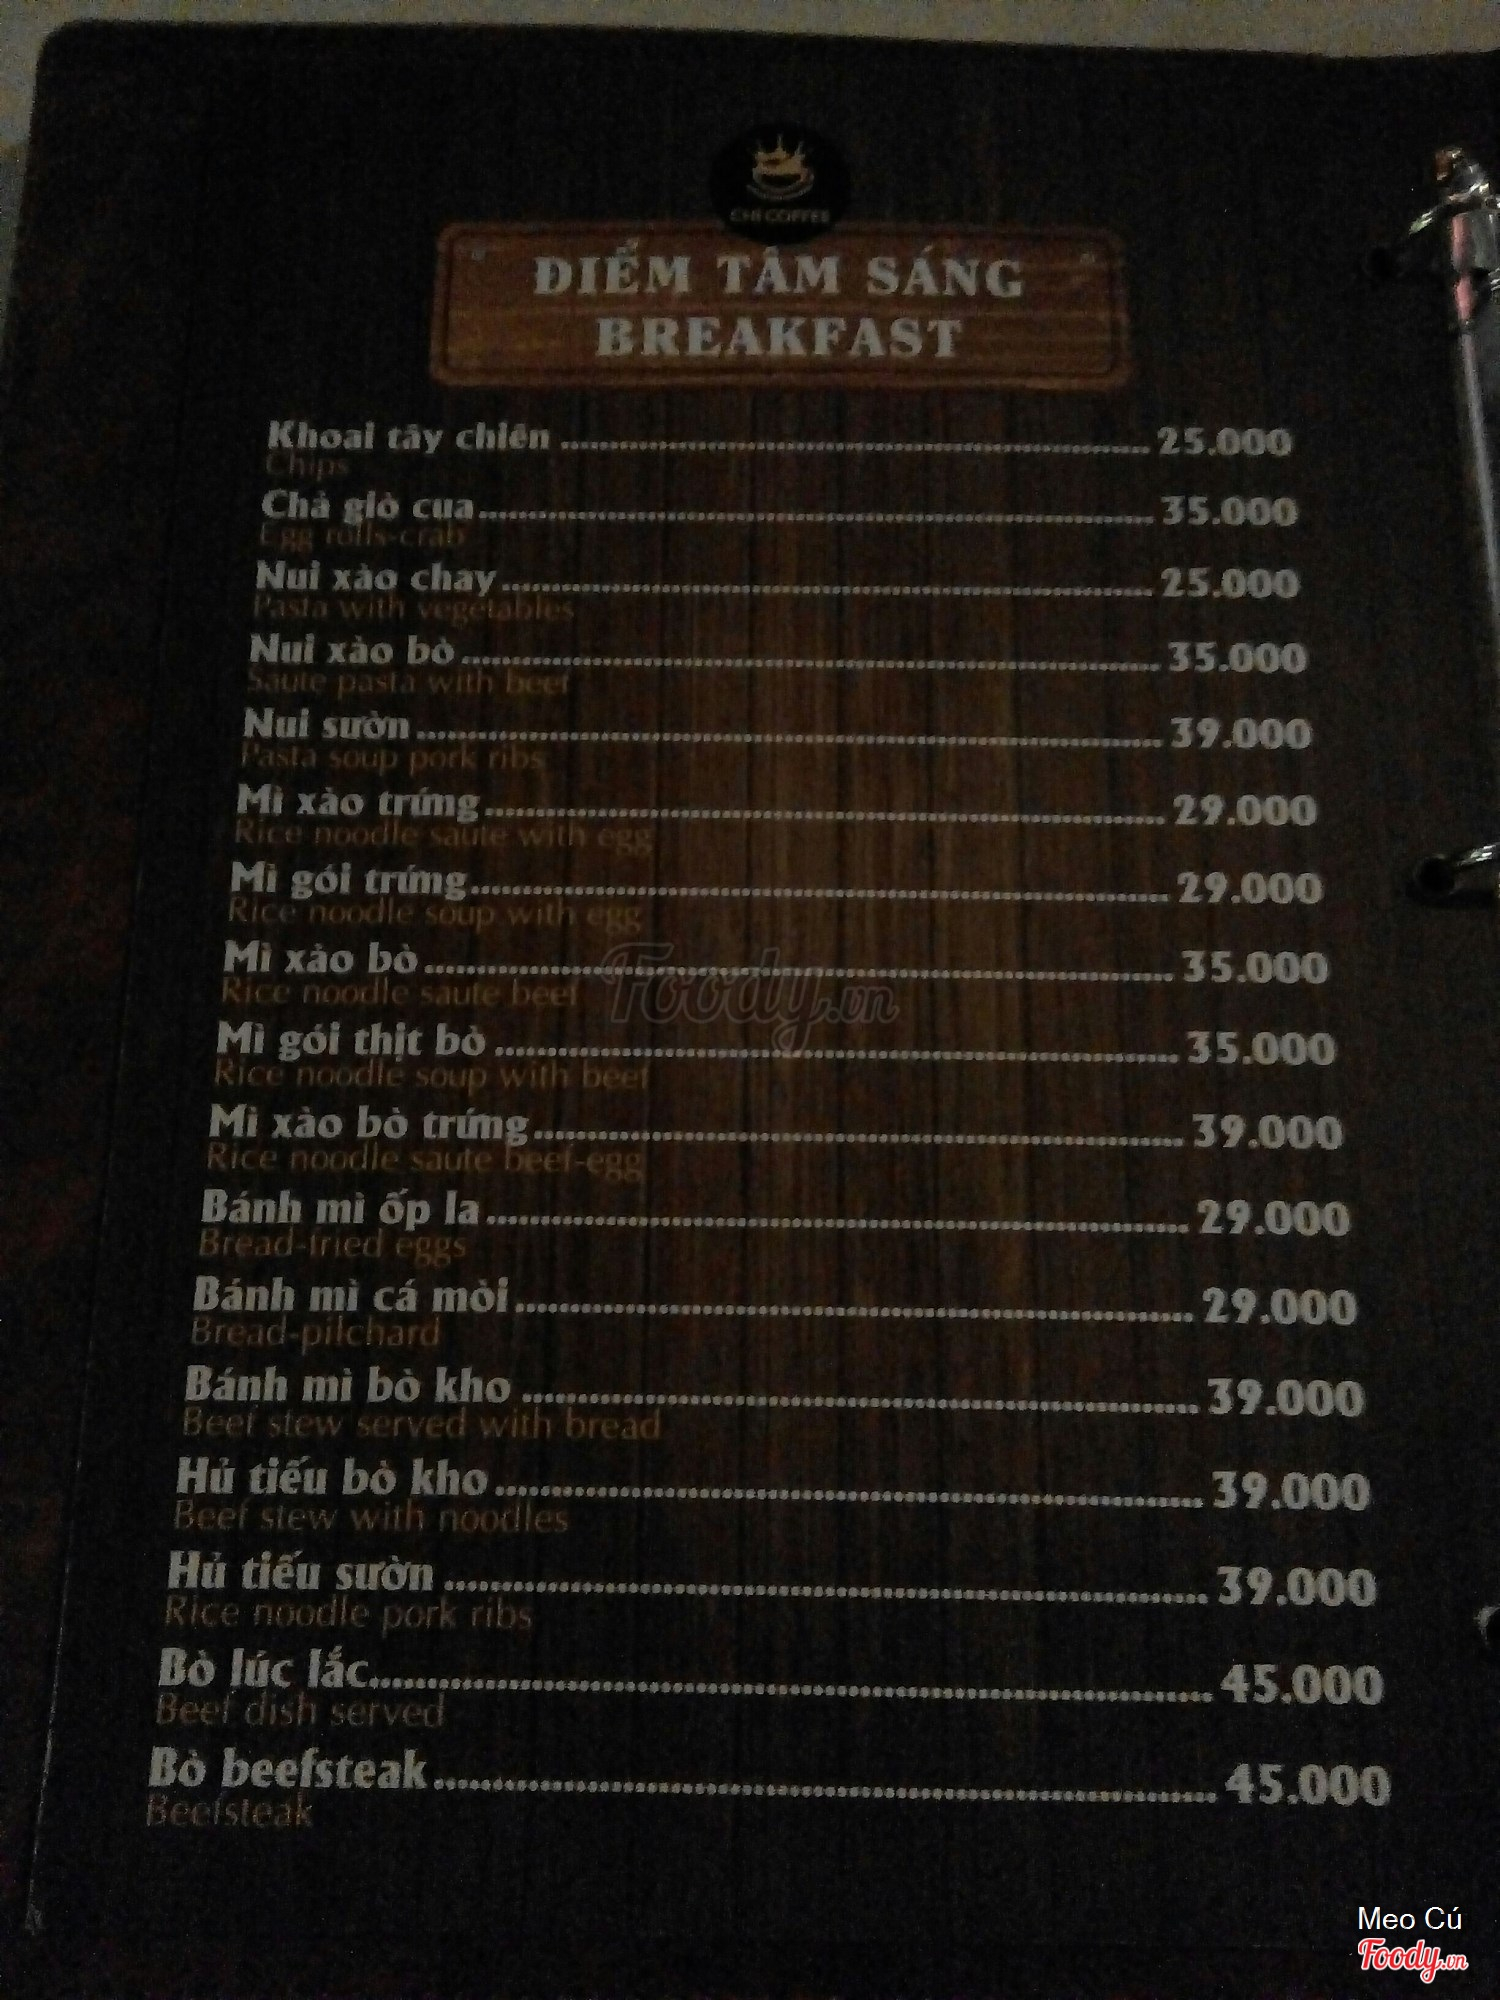 CHI COFFEE
ĐIỂM TÂM SÁNG
BREAKFAST
Khoai tây chiên 25.000
Chips
Chả giò cua 35.000
Egg rolls-crab
Nui xào chay 25.000
Pasta with vegetables
Nui xào bò 35.000
Saute pasta with beef
Nui sườn 39.000
Pasta soup pork ribs
Mì xào trứng 29.000
Rice noodle saute with egg
Mì gói trứng 29.000
Rice noodle soup with egg
Mì xào bò 35.000
Rice noodle saute beef
Foody.vn
Mì gói thịt bò 35.000
Rice noodle soup with beef
Mì xào bò trứng 39.000
Rice noodle saute beef-egg
Bánh mì ốp la 29.000
Bread-fried eggs
Bánh mì cá mòi 29.000
Bread-pilchard
Bánh mì bò kho 39.000
Beef stew served with bread
Hủ tiếu bò kho 39.000
Beef stew with noodles
Hủ tiếu sườn 39.000
Rice noodle pork ribs
Bò lúc lắc 45.000
Beef dish served
Bò beefsteak 45.000
Beefsteak
Meo Cú
Foody.vn